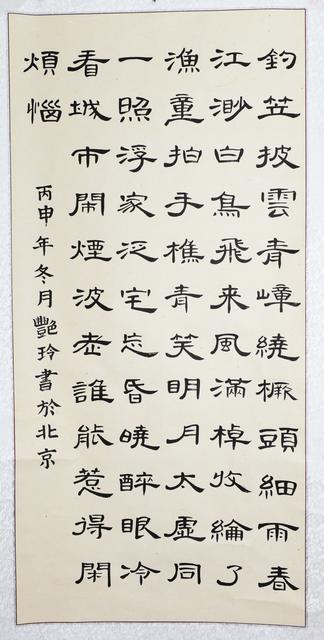 釣笠披雲青嶂繞橛頭細雨春
江渺白鳥飛来風滿棹收綸了
漁童拍手樵青笑明月太虛同
一照浮家泛宅忘昏曉醉眼冷
看城市閙煙波老誰能惹得閑
煩惱
丙申年冬月艷玲書於北京